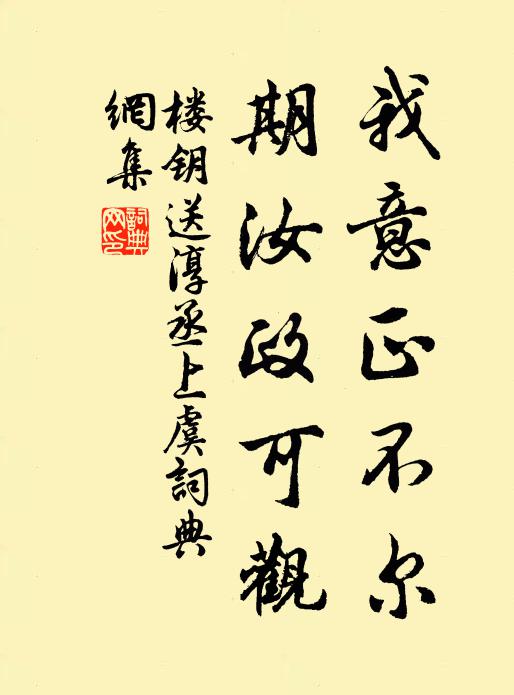 我意正不尔
期汝政可觀
楼钥送淳丞上虞詞典
網集
詞典
网印